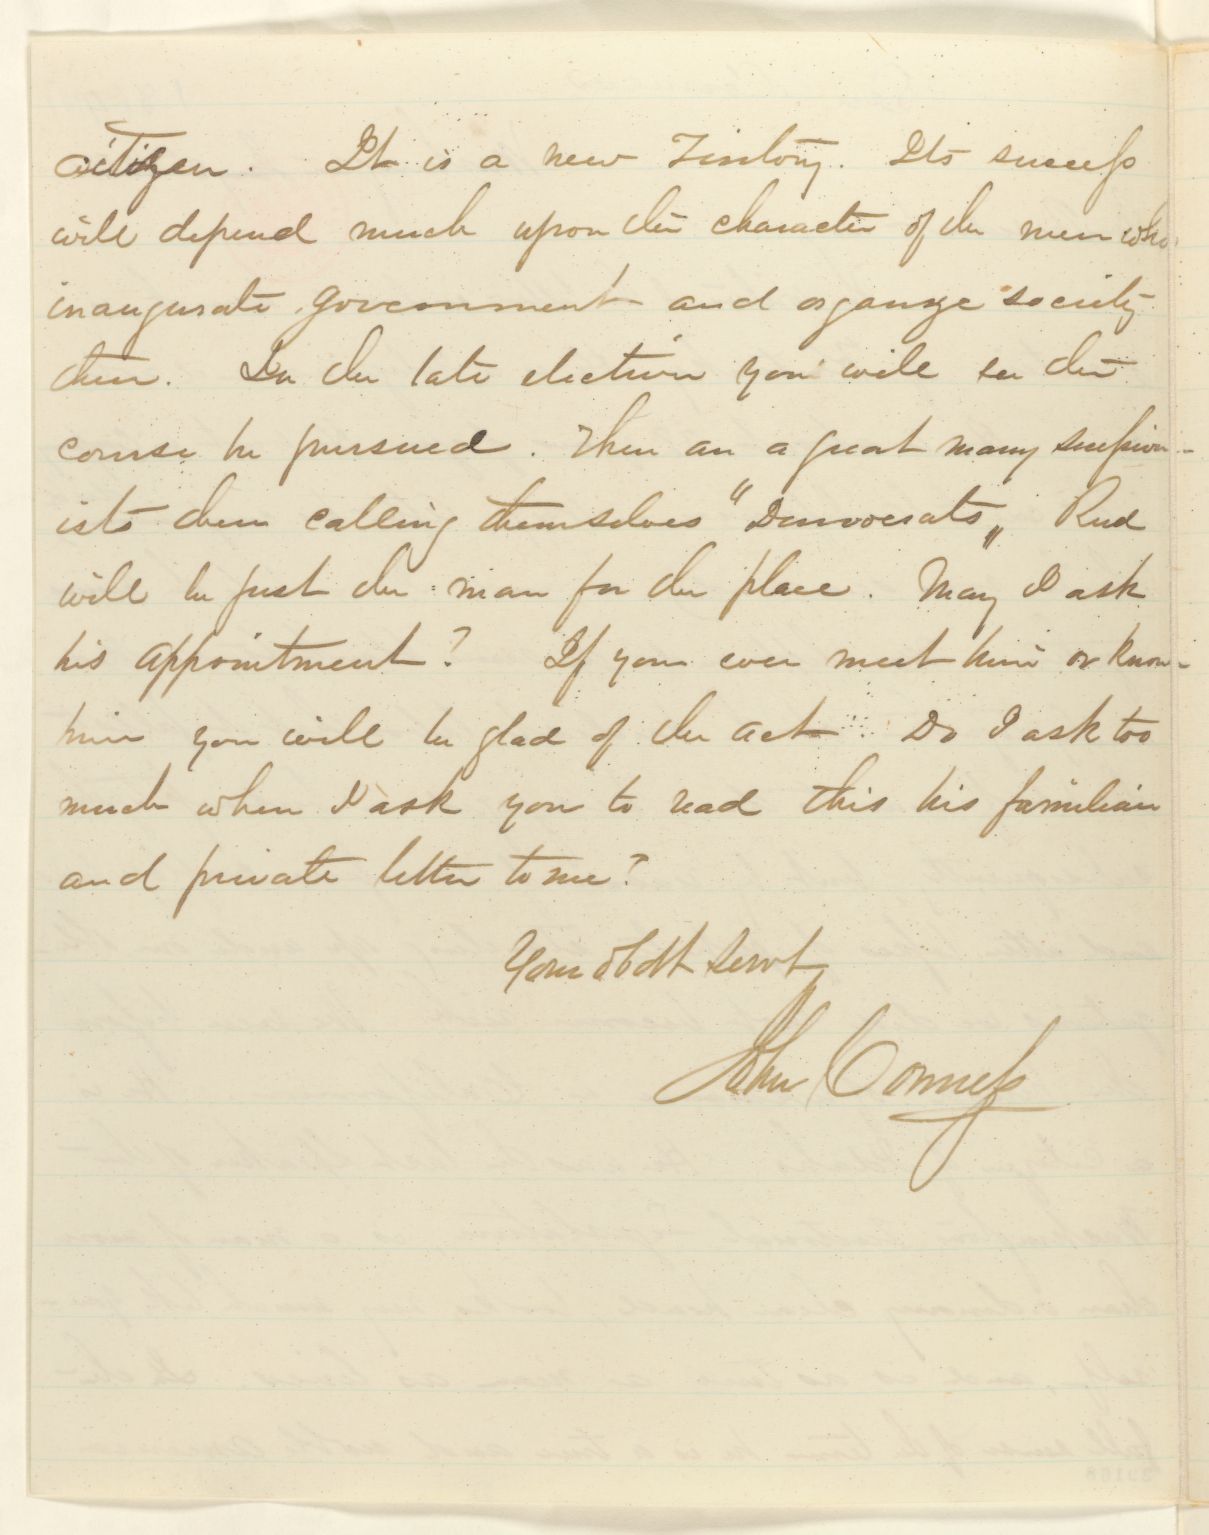 citizen. It is a new Territory. Its success
will depend much upon the character of the men who
inaugurate government and organize society
there. In the late election you will see the
course he pursued. There are a great many secession-
ists there calling themselves "Democrats" Reed
will be just the man for the place. May I ask
his appointment? If you ever meet him or know
him you will be glad of the act. Do I ask too
much when I ask you to read this his familiar
and private letter to me?
Your obdt servt
John Conness